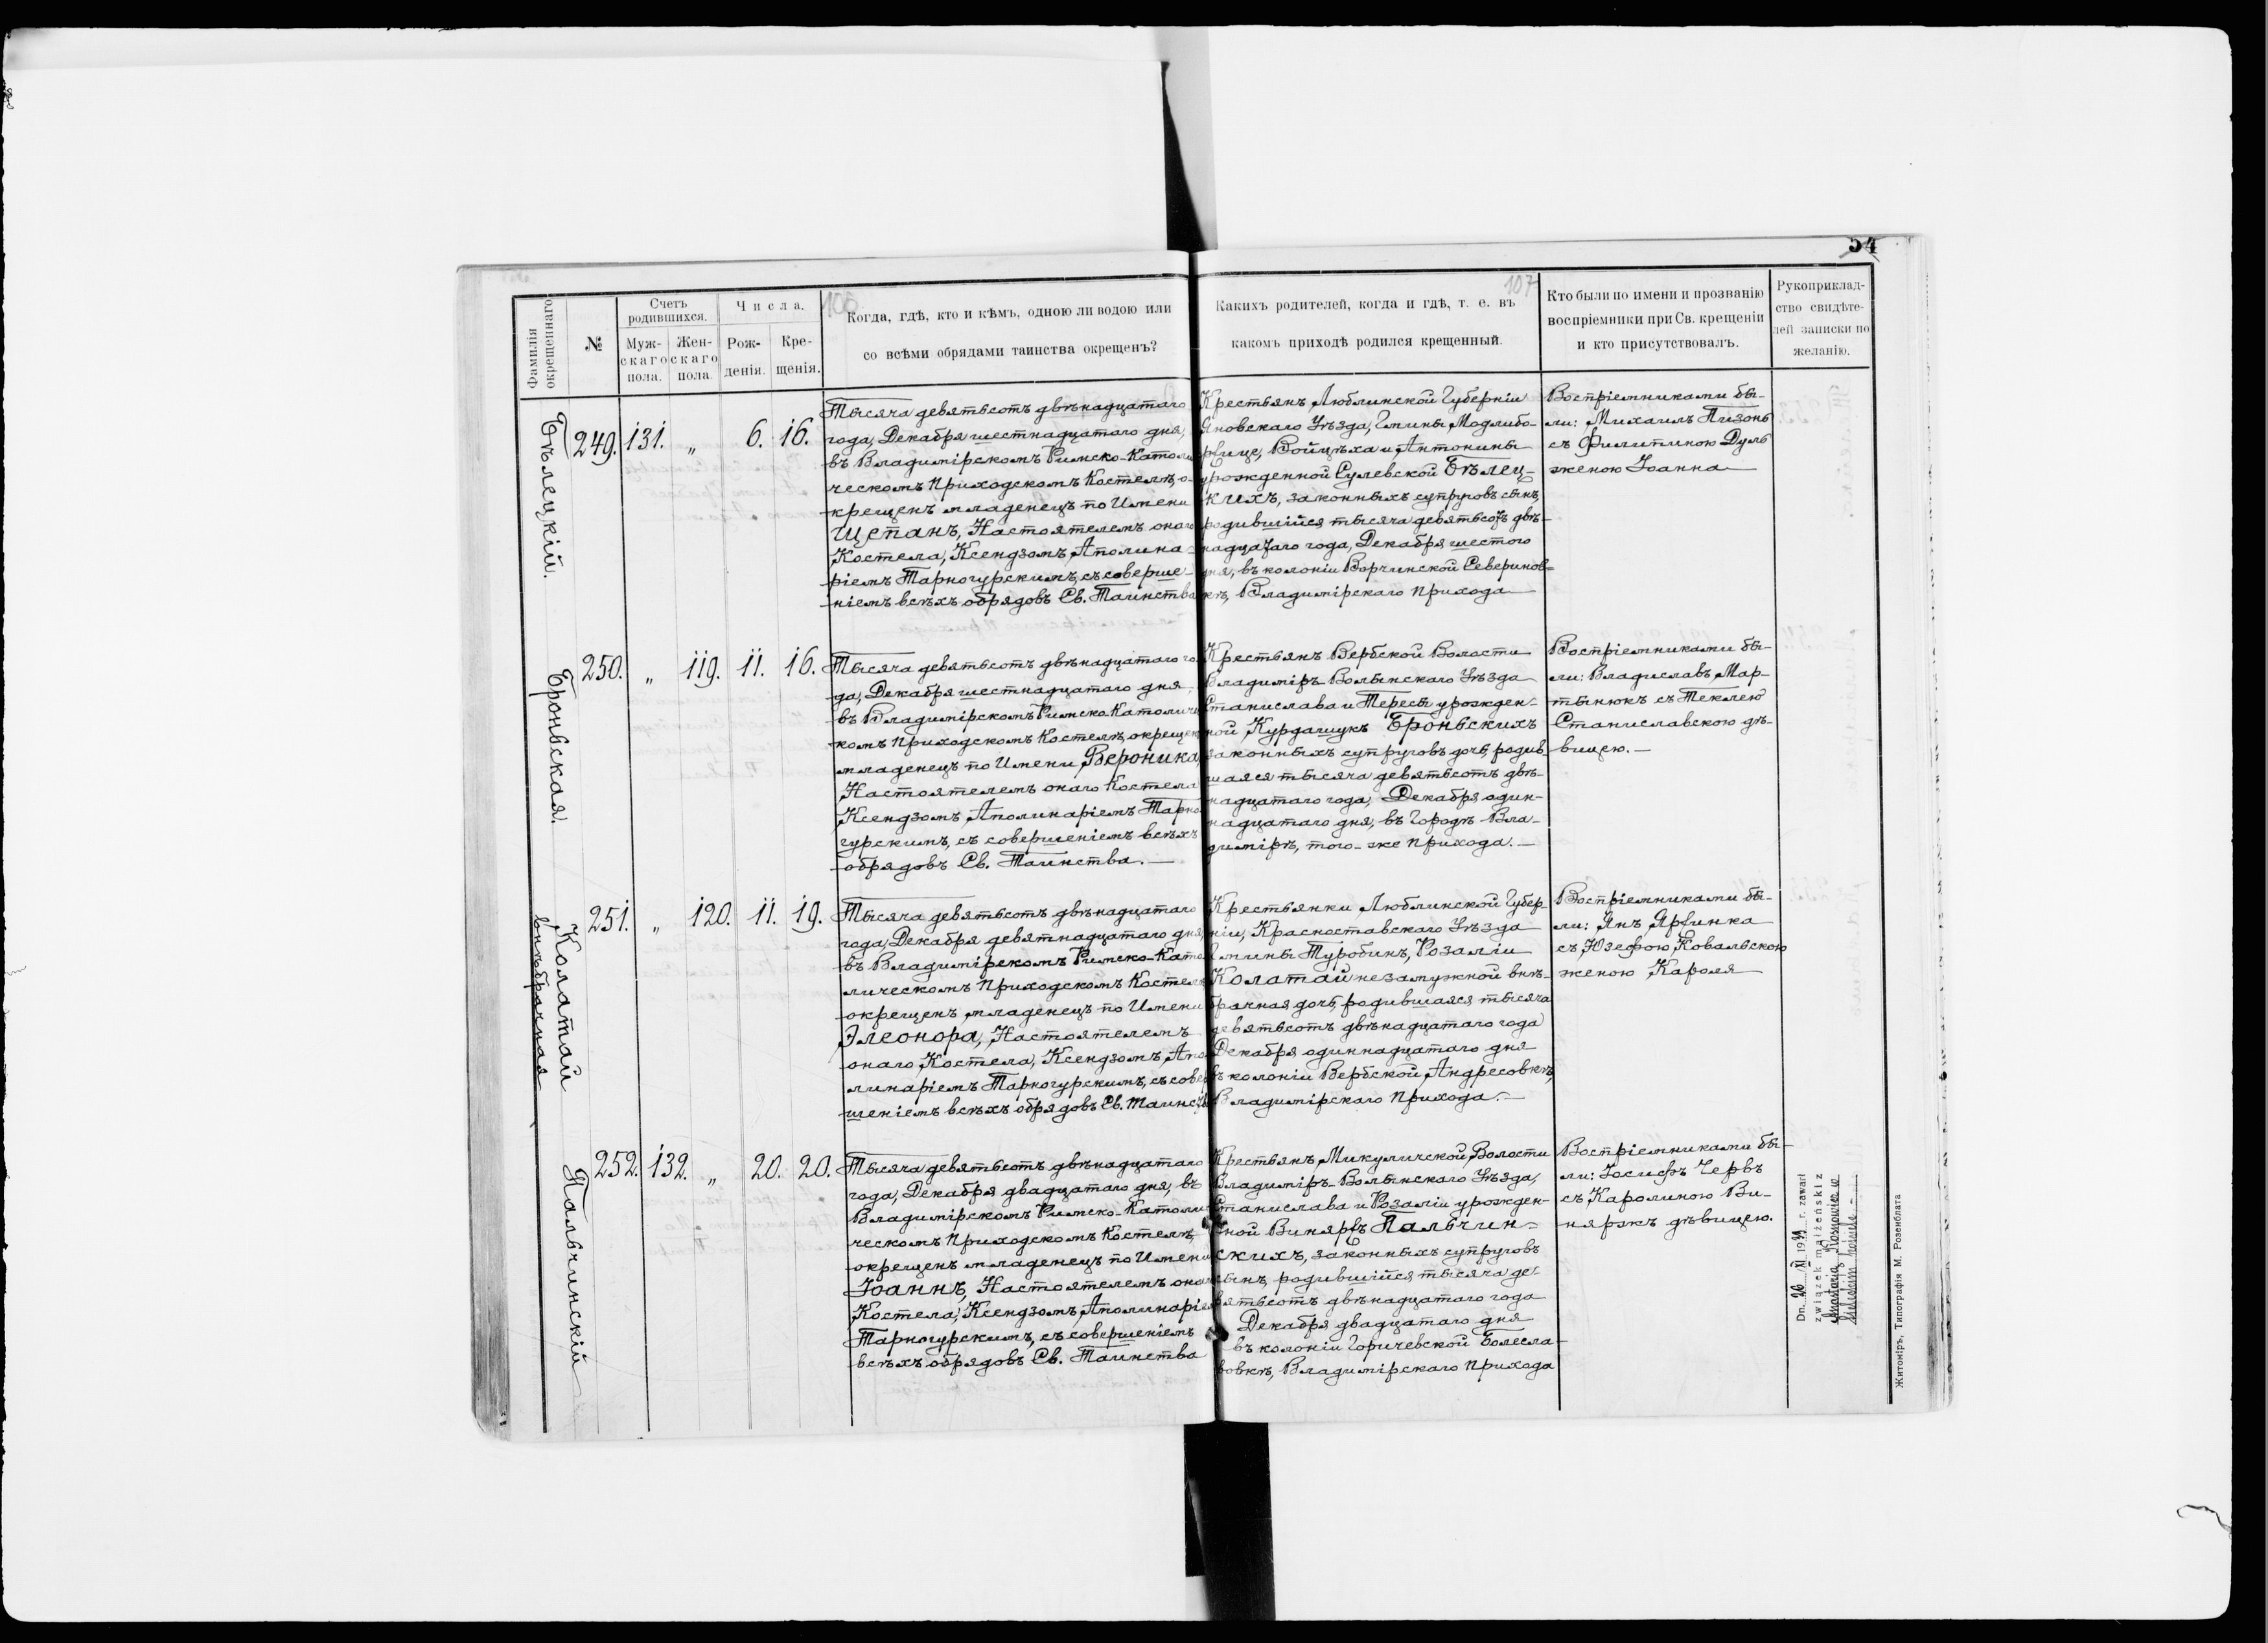 54
106
107
Фамилія окрещеннаго.
№
Счетъ родившихся.
Муж-
скаго
пола.
Жен-
скаго
пола.
Числа.
Рож-
денія.
Кре-
щенія.
Когда, гдѣ, кто и кѣмъ, одною ли водою или
со всѣми обрядами таинства окрещенъ?
Какихъ родителей, когда и гдѣ, т. е. въ
какомъ приходѣ родился крещенный.
Кто были по имени и прозванію
воспріемники при Св. крещеніи
и кто присутствовалъ.
Рукоприклад-
ство свидѣте-
лей записки по
желанію.
Бѣлецкій.
249. 131. „ 6. 16.
Тысяча девятьсотъ двѣнадцатаго
года, Декабря шестнадцатаго дня,
въ Владимірскомъ Римско-Католи
ческомъ Приходскомъ Костелѣ, о-
крещенъ младенецъ по Имени
Щепанъ, Настоятелемъ онаго
Костела, Ксендзомъ Аполина-
ріемъ Тарногурскимъ, съ соверше-
ніемъ всѣхъ обрядовъ Св. Таинства
Крестьянъ, Люблинской Губерніи
Яновскаго Уѣзда, Гмины Модлибо-
ржице, Войцѣха и Антонины
урожденной Сулевской Бѣлец-
кихъ, законныхъ супруговъ сынъ,
родившійся тысяча девятьсотъ двѣ-
надцатаго года, Декабря шестого
дня, въ колоніи Ворчинской Северинов-
кѣ, Владимірскаго прихода
Воспріемниками бы-
ли: Михаилъ Пизонь
съ Филипиною Дуль
женою Іоанна
Броньская.
250. „ 119. 11. 16.
Тысяча девятьсотъ двѣнадцатаго го-
да, Декабря шестнадцатаго дня
въ Владимірскомъ Римско-Католичес
комъ Приходскомъ Костелѣ, окрещенъ
младенецъ по Имени Вероника,
Настоятелемъ онаго Костела
Ксендзомъ Аполинаріемъ Тарно
гурскимъ, съ совершеніемъ всѣхъ
обрядовъ Св. Таинства.—
Крестьянъ Вербской Волости
Владиміръ-Волынскаго Уѣзда
Станислава и Тересы урожден-
ной Курдашукъ Броньскихъ
законныхъ супруговъ дочь, родив-
шаяся тысяча девятьсотъ двѣ-
надцатаго года, Декабря один-
надцатаго дня, въ Городѣ Вла-
димірѣ, того-же прихода.—
Воспріемниками бы-
ли: Владиславъ Мар-
тынюкъ съ Теклею
Станиславскою дѣ-
вицею.—
Колатай
внѣбрачная
251. „ 120. 11. 19.
Тысяча девятьсотъ двѣнадцатаго
года, Декабря девятнадцатаго дня,
въ Владимірскомъ Римско-Като
лическомъ Приходскомъ Костелѣ
окрещенъ младенецъ по Имени
Элеонора, Настоятелемъ
онаго Костела, Ксендзомъ Апо
линаріемъ Тарногурскимъ, съ совер
шеніемъ всѣхъ обрядовъ Св. Таинства
Крестьянки Люблинской Губер-
ніи, Красноставскаго Уѣзда
Гмины Туробинъ, Розаліи
Колатай незамужной внѣ-
брачная дочь, родившаяся тысяча
девятьсотъ двѣнадцатаго года
Декабря одиннадцатаго дня
въ колоніи Вербской Андресовкѣ,
Владимірскаго Прихода.—
Воспріемниками бы-
ли: Янъ Яржинка
съ Юзефою Ковальскою
женою Кароля
Пальчинскій
252. 132. „ 20. 20.
Тысяча девятьсотъ двѣнадцатаго
года, Декабря двадцатаго дня, въ
Владимірскомъ Римско-Католи
ческомъ Приходскомъ Костелѣ,
окрещенъ младенецъ по Имени
Іоаннъ, Настоятелемъ онаго
Костела, Ксендзомъ Аполинаріемъ
Тарногурскимъ, съ совершеніемъ
всѣхъ обрядовъ Св. Таинства
Крестьянъ, Микуличской Волости
Владиміръ-Волынскаго Уѣзда,
Станислава и Розаліи урожден-
ной Виняржъ Пальчин-
скихъ, законныхъ супруговъ
сынъ, родившійся тысяча де-
вятьсотъ двѣнадцатаго года
Декабря двадцатаго дня
въ колоніи Горичевской Болесла-
вовкѣ, Владимірскаго Прихода
Воспріемниками бы-
ли: Іосифъ Червъ
съ Каролиною Ви-
няржъ дѣвицею.
Dn. 26/XI 1939 r. zawarł
związek małżeński z
Житоміръ, Типографія М. Розенблата